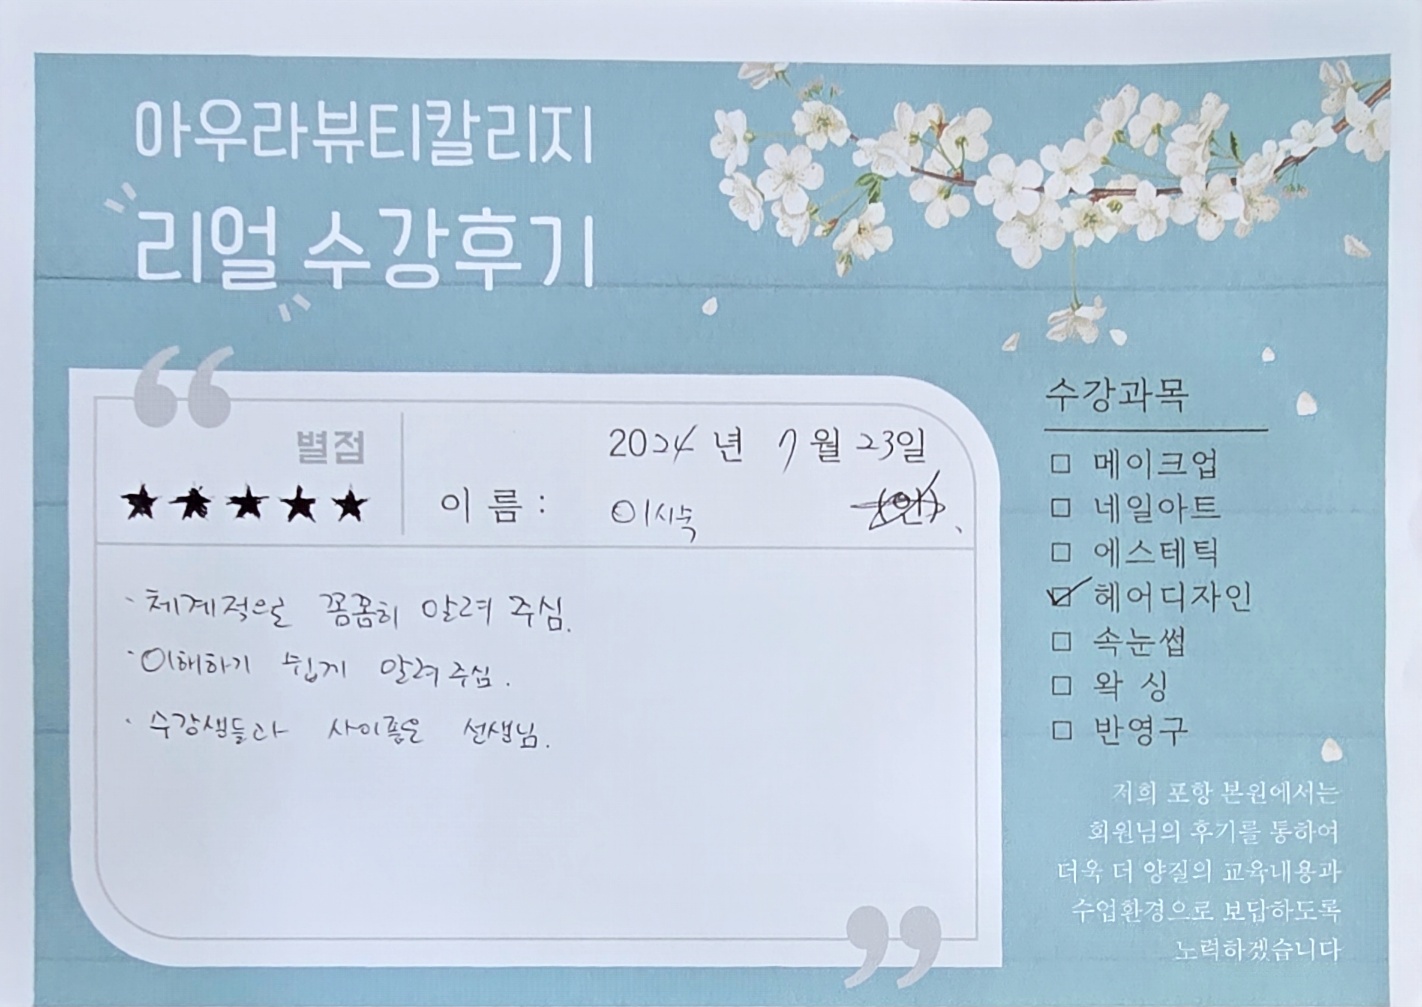 아우라뷰티칼리지
리얼 수강후기
별점
★★★★★
2024년 7월 23일
이름: 이시숙 (인)
· 체계적으로 꼼꼼히 알려 주심.
· 이해하기 쉽게 알려 주심.
· 수강생들과 사이좋은 선생님.
수강과목
□ 메이크업
□ 네일아트
□ 에스테틱
☑ 헤어디자인
□ 속눈썹
□ 왁 싱
□ 반영구
저희 포항 본원에서는
회원님의 후기를 통하여
더욱 더 양질의 교육내용과
수업환경으로 보답하도록
노력하겠습니다